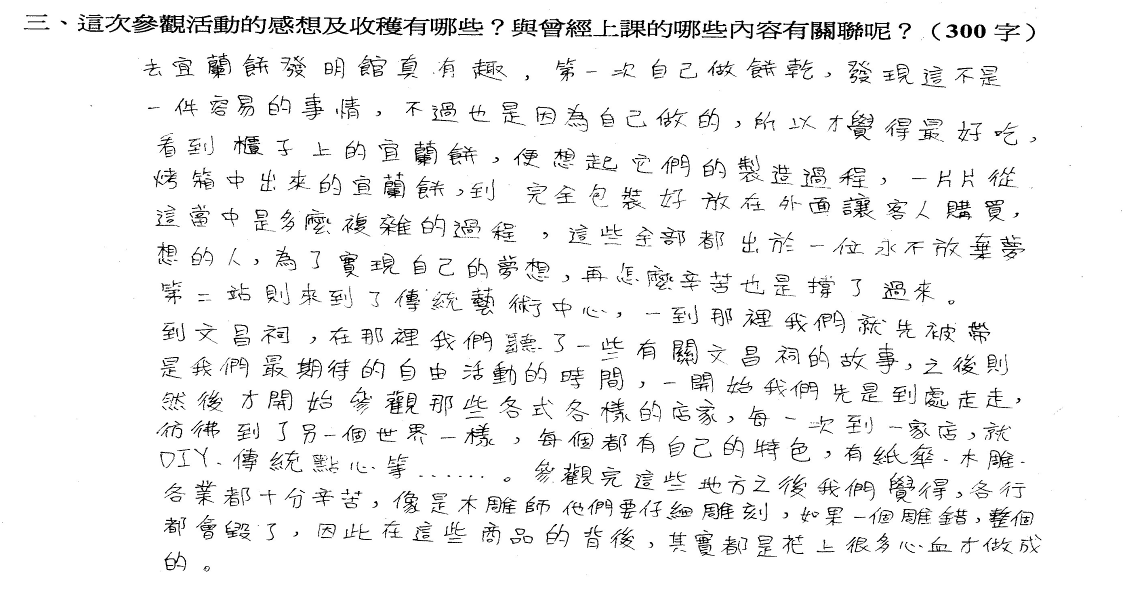 三、這次參觀活動的感想及收穫有哪些？與曾經上課的哪些內容有關聯呢？（300 字）
去宜蘭餅發明館真有趣，第一次自己做餅乾，發現這不是
一件容易的事情，不過也是因為自己做的，所以才覺得最好吃，
看到櫃子上的宜蘭餅，便想起它們的製造過程，一片片從
烤箱中出來的宜蘭餅，到 完全包裝好放在外面讓客人購買，
這當中是多麼複雜的過程，這些全部都出於一位永不放棄夢
想的人，為了實現自己的夢想，再怎麼辛苦也是撐了過來。
第二站則來到了傳統藝術中心，一到那裡我們就先被帶
到文昌祠，在那裡我們聽了一些有關文昌祠的故事，之後則
是我們最期待的自由活動的時間，一開始我們先是到處走走，
然後才開始參觀那些各式各樣的店家，每一次到一家店，就
彷彿到了另一個世界一樣，每個都有自己的特色，有紙傘、木雕、
DIY、傳統點心等……。參觀完這些地方之後我們覺得，各行
各業都十分辛苦，像是木雕師他們要仔細雕刻，如果一個雕錯，整個
都會毀了，因此在這些商品的背後，其實都是花上很多心血才做成
的。